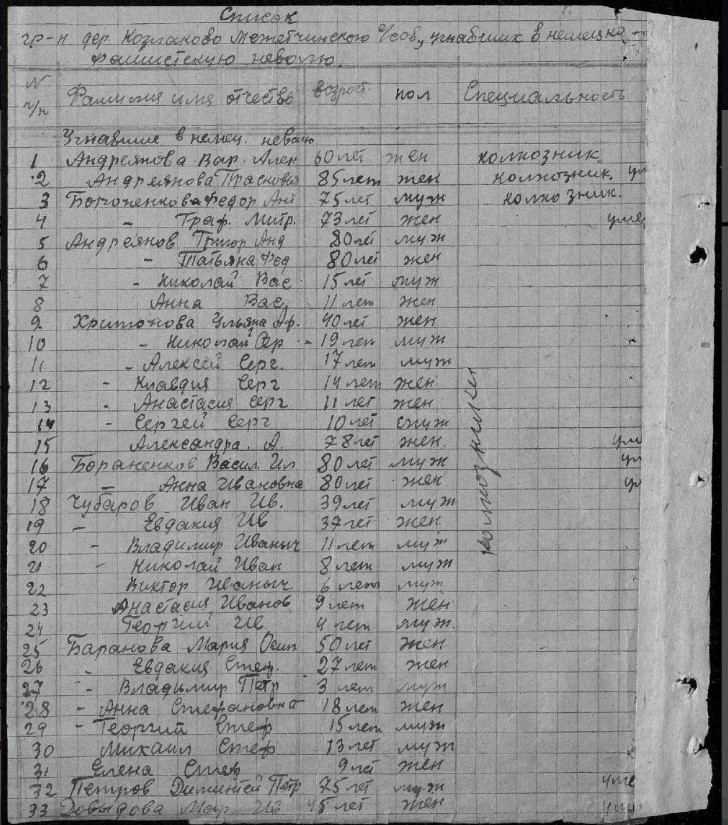 Список
гр-н дер. Козлаково Межетчинского с/соб, угнавших в немецко-
фашистскую неволю.
N п/п Фамилия имя отчество возраст. пол Специальность
Угнавшие в немец. неволю
1 Андреянова Вар. Алек 60 лет жен колхозник
2 Андреянова Прасковья 85 лет жен колхозник. ум
3 Бороченкова Федор Ант 75 лет муж колхозник.
4 - Траф. Митр. 73 лет жен уме
5 Андреянов Григор Анд 80 лет муж
6 - Татьяна Фед 80 лет жен
7 - Николай Вас 15 лет муж
8 Анна Вас 11 лет жен
9 Хритонова Ульяна Аф. 40 лет жен
10 - Николай Сер - 19 лет муж
11 - Алексей Серг. 17 лет муж
12 - Клавдия Серг 14 лет жен
13 - Анастасия Серг 11 лет жен
14 - Сергей Серг 10 лет муж
15 Александра. А. 78 лет жен. ум
16 Бораненков Васил. Ил 80 лет муж ум
17 - Анна Ивановна 80 лет жен ум
18 Чубаров Иван Ив. 39 лет муж
19 - Евдакия Ив 37 лет жен
20 - Владимир Иваныч 11 лет муж
21 - Николай Иван 8 лет муж
22 Виктор Иваныч 6 лет муж
23 Анастасия Иванов 9 лет жен
24 Георгий Ив. 4 лет муж.
25 Баранова Мария Осип 50 лет жен
26 - Евдакия Стеф. 27 лет жен
27 - Владимир Петр 3 лет муж
28 - Анна Стефановна 18 лет жен
29 - Георгий Стеф 15 лет муж
30 Михаил Стеф 13 лет муж
31 Елена Стеф 9 лет жен
32 Петров Диминтей Петр 75 лет муж уме
33 Довыдова Мар Ив 45 лет жен
колхозники